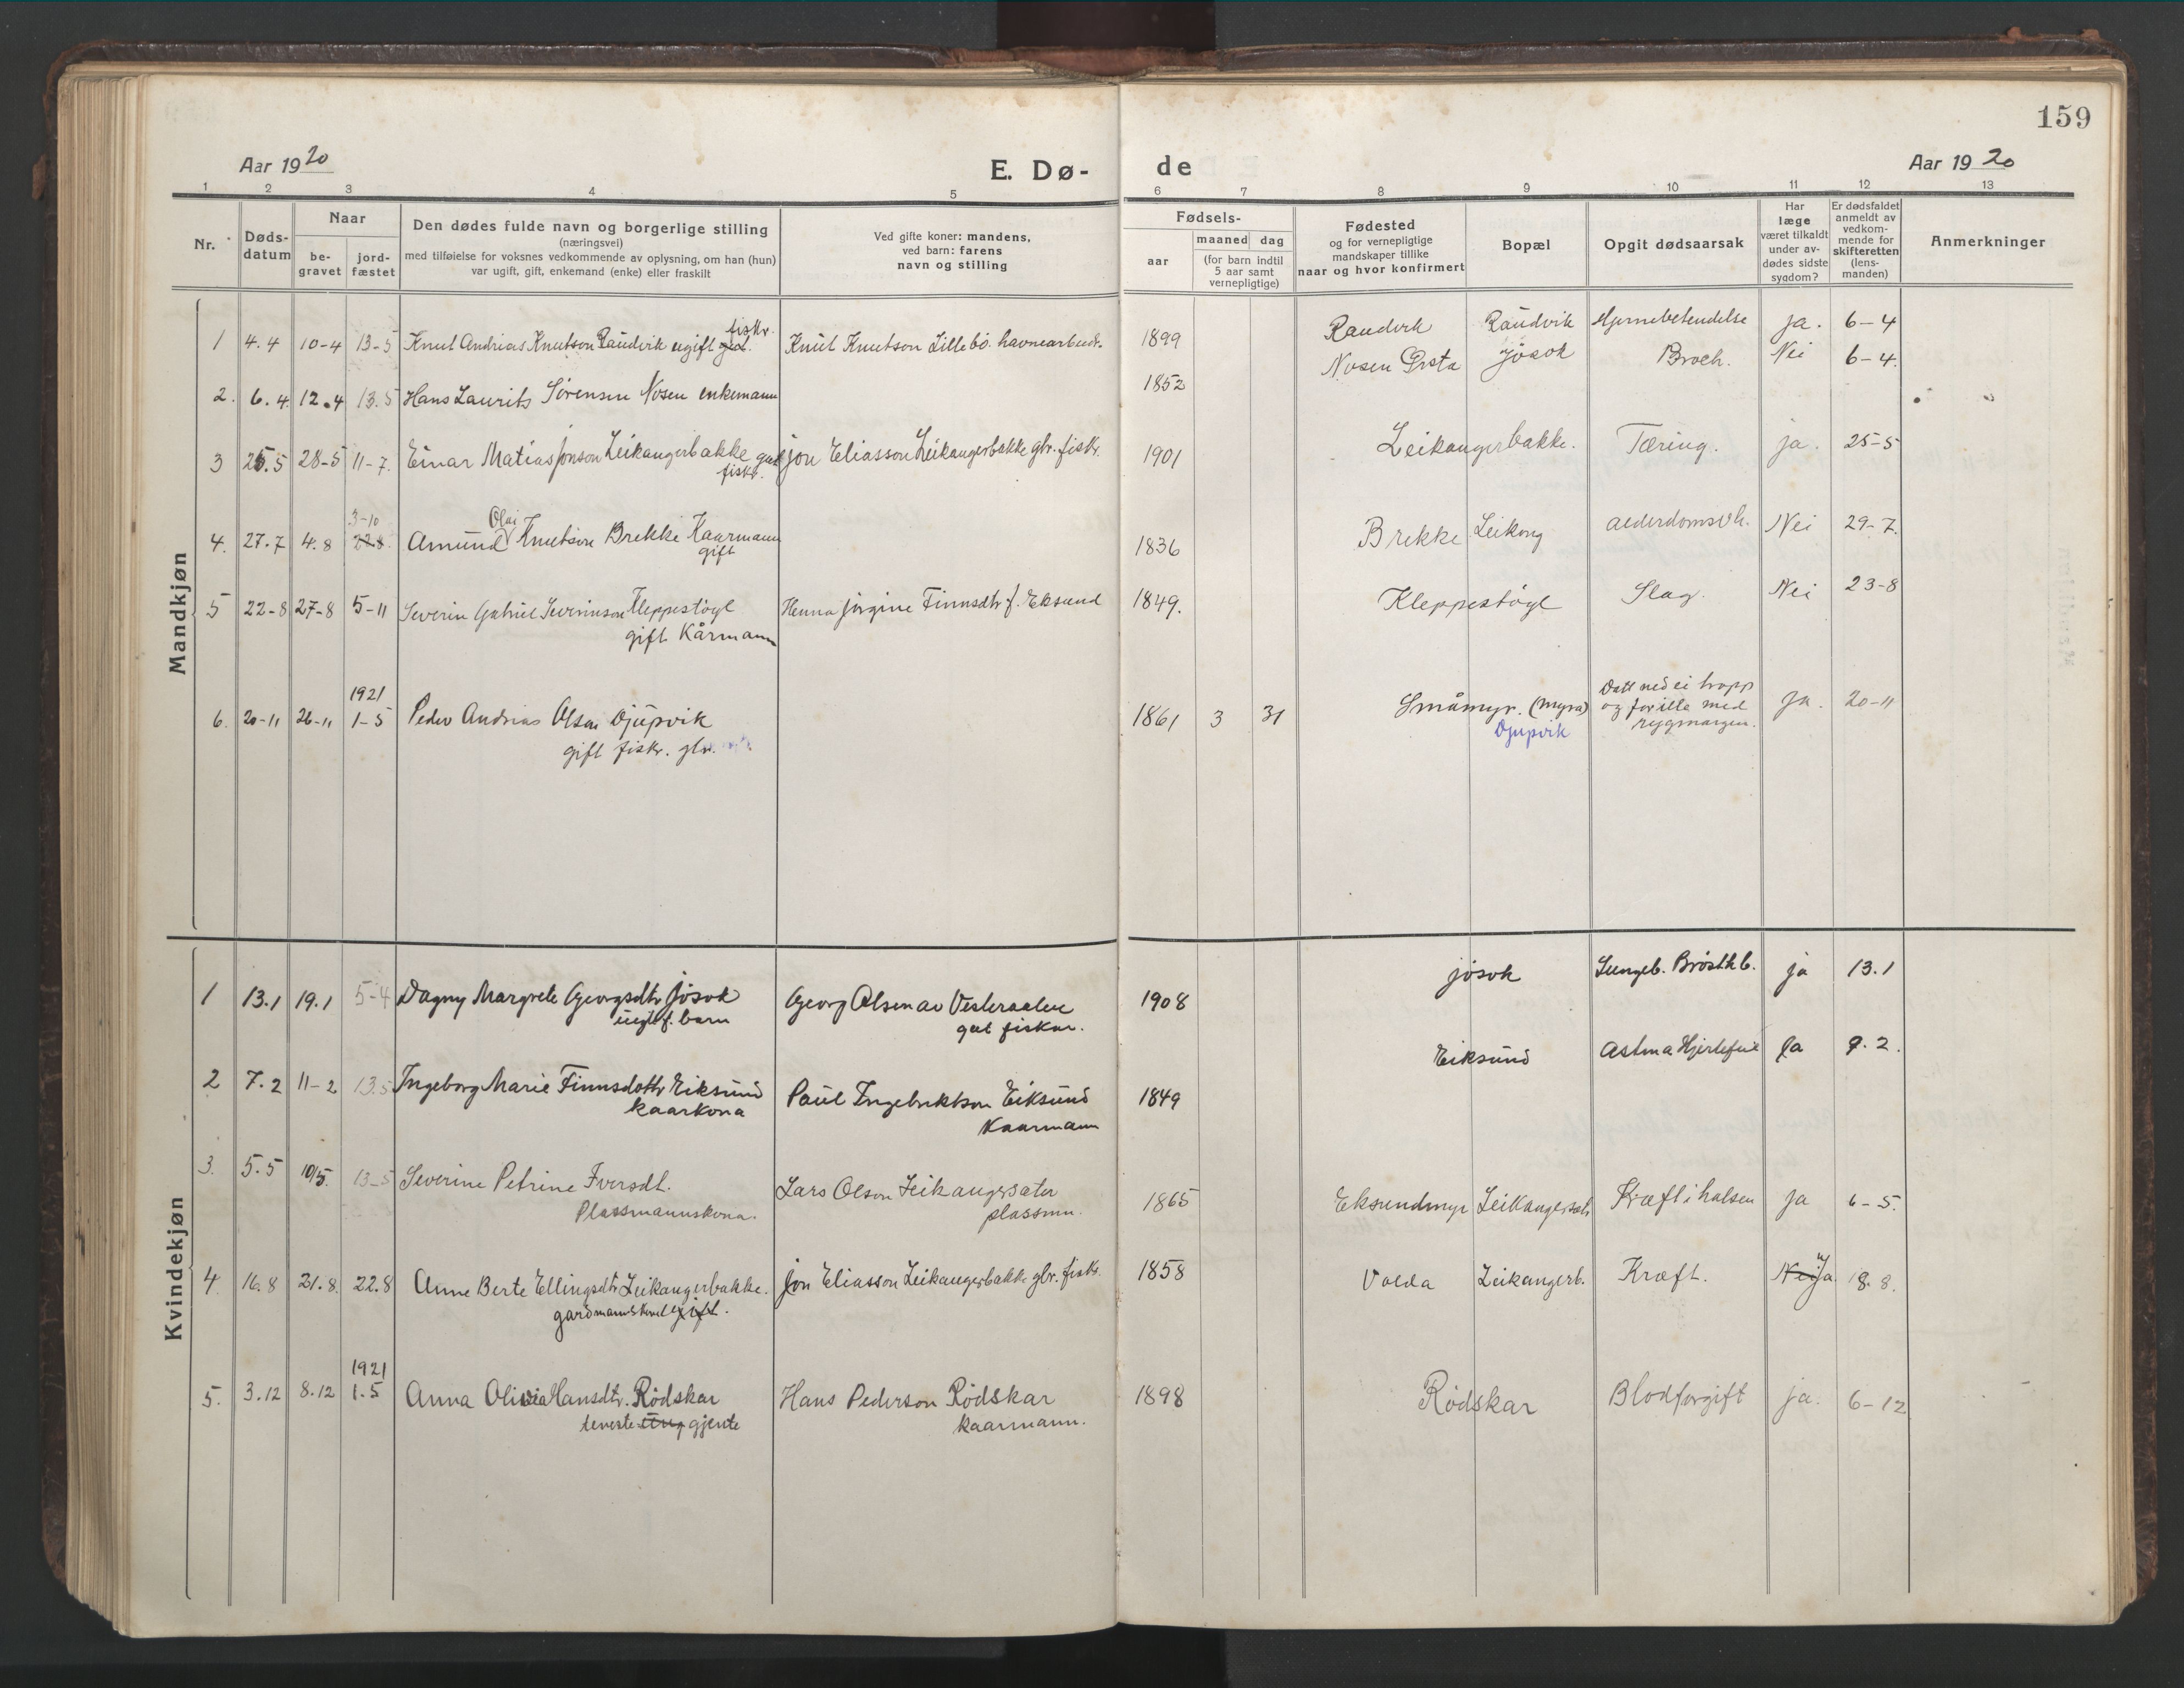 159
Aar 1920
E. Dø-
de
Aar 1920
1 2 3 4 5 6 7 8 9 10 11 12 13
Nr.
Døds-
datum
Naar
be-
gravet
jord-
fæstet
Den dødes fulde navn og borgerlige stilling
(næringsvei)
med tilføielse for voksnes vedkommende av oplysning, om han (hun)
var ugift, gift, enkemand (enke) eller fraskilt
Ved gifte koner: mandens,
ved barn: farens
navn og stilling
Fødsels-
aar
maaned dag
(for barn indtil
5 aar samt
vernepligtige)
Fødested
og for vernepligtige
mandskaper tillike
naar og hvor konfirmert
Bopæl
Opgit dødsaarsak
Har
læge
været tilkaldt
under av-
dødes sidste
sygdom?
Er dødsfaldet
anmeldt av
vedkom-
mende for
skifteretten
(lens-
manden)
Anmerkninger
Mandkjøn
fiskr.
1 4.4 10-4 13-5 Knut Andrias Knutson Raudvik ugift gut. Knut Knutson Lillebö. havnearbeidr. 1899 Raudvik Raudvik Hjernebetendelse ja. 6-4
2. 6.4. 12.4 13.5 Hans Laurits Sørensen Nosen enkemann 1852 Nosen Ørsta Jösok Broch. Nei 6-4.
3 25.5 28-5 11-7. Einar Matias Jonson Leikangerbakke gut Jon Eliasson Leikangerbakke gbr. fiskr. 1901 Leikangerbakke. Tæring. ja. 25-5
fiskr.
3-10
Olai
4. 27.7 4.8 22.8. Amund Knutson Brekke Kaarmann 1836 Brekke Leikong alderdomsvk. Nei 29-7.
gift
5 22-8 27-8 5-11 Severin Gabriel Severinson Kleppestögl Henna Jörgine Finnsdtr f. Eksund 1849. Kleppestögl Slag. Nei 23-8
gift Kårmann
1921
6. 20-11 26-11 1-5 Peder Andrias Olsen Djupvik 1861 3 31 Småmyr. (Myra) Datt ned ei trapp ja. 20-11
og for ille med
rygmargen.
Djupvik
gift fiskr. gbr.
Kvindekjøn
1 13.1 19.1 5-4 Dagny Margrete Georgsdtr Jösok Georg Olsen av Vesteraalen 1908 jösok Lungeb. Brösthb. ja 13.1
uegtef. barn gut fiskar.
2 7.2 11-2 13.5 Ingeborg Marie Finnsdottr Eiksund Paul Ingebriktson Eiksund 1849 Eiksund Astma Hjertefeil Ja 9.2.
kaarkona Kaarmann
3. 5.5 10/5. 13-5 Severine Petrine Iversdt. Lars Olson Leikangersæter 1865 Eksundmyr Leikangersætr Kræft i halsen ja 6-5.
Plassmannskona. plassmn.
4. 16.8 21.8. 22.8 Anne Berte Ellingsdtr Leikangerbakke. Jon Eliasson Leikangerbakke gbr. fiskr. 1858 Volda Leikangerb. Kræft. Nei Ja 18.8.
gardmannskone gift.
1921
5. 3.12 8.12 1.5 Anna Olivia Hansdtr. Rödskar Hans Pederson Rödskar 1898 Rödskar Blodforgift ja. 6-12
teneste gjente kaarmann.